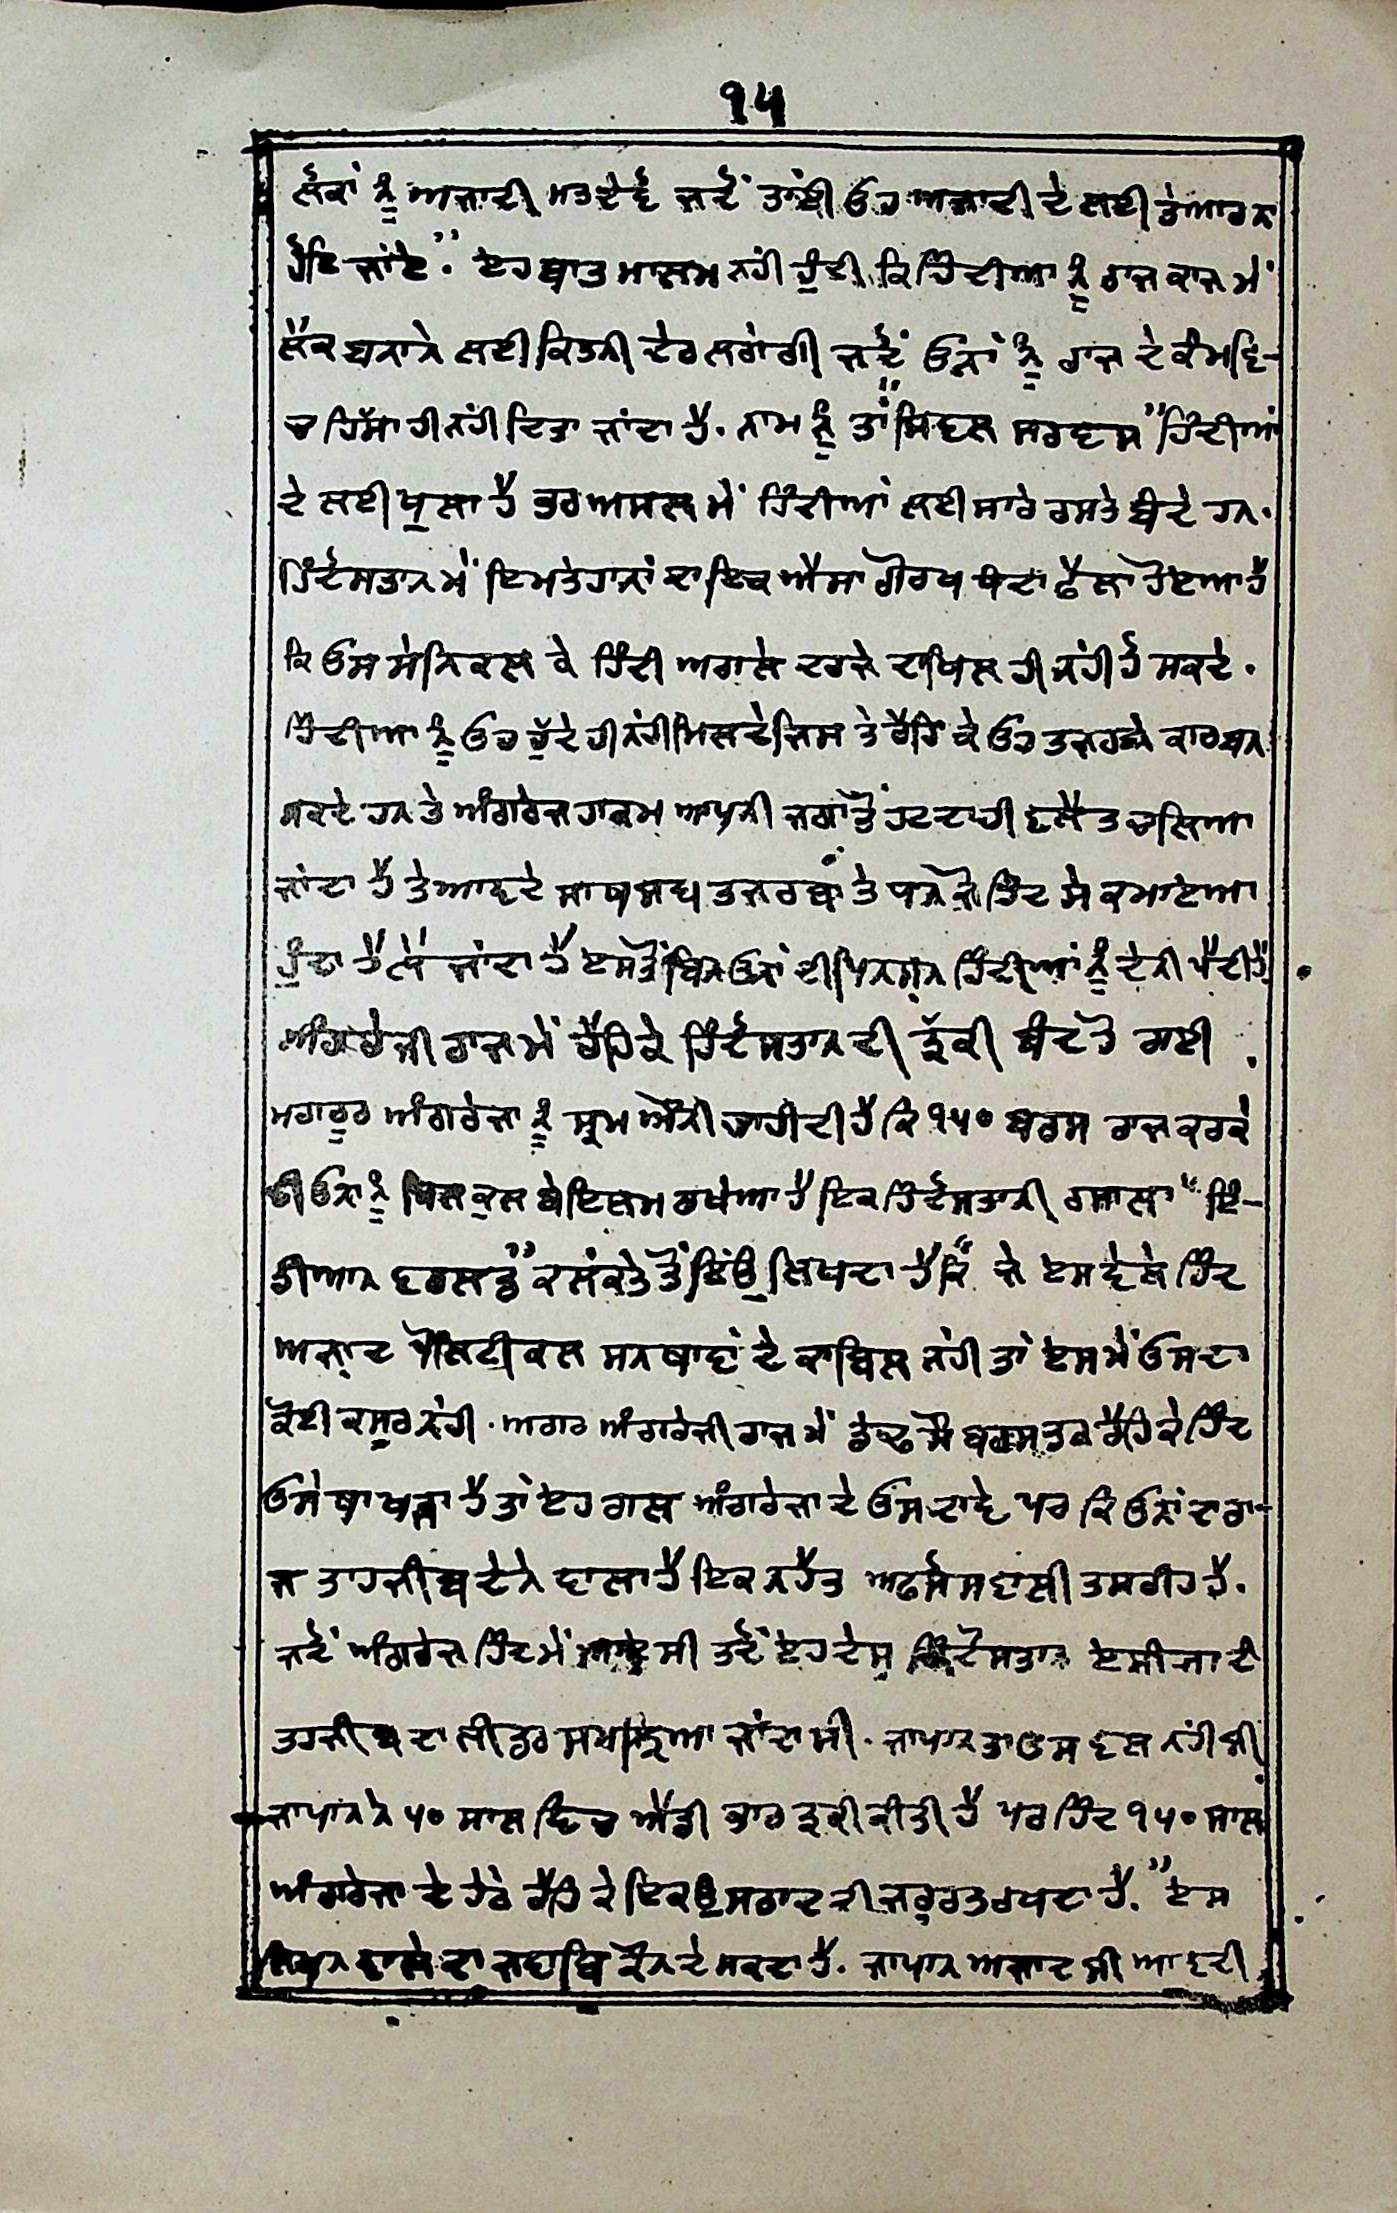 ੧੫
ਲੋਕਾਂ ਨੂੰ ਅਜ਼ਾਦੀ ਮਤ ਦੇਵੋ ਜਦੋਂ ਤਾਂਈ ਉਹ ਅਜ਼ਾਦੀ ਦੇ ਲਈ ਤੇਆਰ ਨਾ
ਹੋਇ ਜਾਂਏ". ਏਹ ਬਾਤ ਮਾਲਮ ਨਹੀ ਹੁੰਦੀ ਕਿ ਹਿੰਦੀਆ ਨੂੰ ਰਾਜ ਕਾਜ ਮੇਂ
ਲੈਕ ਬਨਾਨੇ ਲਈ ਕਿਤਨੀ ਦੇਰ ਲਗੇਗੀ ਜਦੋਂ ਉਨਾਂ ਨੂੰ ਰਾਜ ਦੇ ਕੰਮ ਵਿ-
ਚ ਹਿੱਸਾ ਹੀ ਨਹੀ ਦਿਤਾ ਜਾਂਦਾ ਹੈ. ਨਾਮ ਨੂੰ ਤਾਂ "ਸਿਵਲ ਸਰਵਸ" ਹਿੰਦੀਆਂ
ਦੇ ਲਈ ਖੁਲਾ ਹੈ ਤਰ ਅਸਲ ਮੇਂ ਹਿੰਦੀਆਂ ਲਈ ਸਾਰੇ ਰਸਤੇ ਬੰਦੇ ਹਨ.
ਹਿੰਦੋਸਤਾਨ ਮੇਂ ਇਮਤੇਹਾਨਾਂ ਦਾ ਇਕ ਐਸਾ ਗੋਰਖ ਧੰਦਾ ਫੈਲਾ ਹੋਇਆ ਹੈ
ਕਿ ਉਸ ਸੇ ਨਿਕਲ ਕੇ ਹਿੰਦੀ ਅਗਲੇ ਦਰਜੇ ਦਾਖਿਲ ਹੀ ਨਹੀ ਹੋ ਸਕਦੇ.
ਹਿੰਦੀਆ ਨੂੰ ਉਹ ਹੁੱਦੇ ਹੀ ਨਹੀ ਮਿਲਦੇ ਜਿਸ ਤੇ ਰੈਹਿ ਕੇ ਉਹ ਤਜਰਬੇ ਕਾਰ ਬਨ
ਸਕਦੇ ਹਨ ਤੇ ਅੰਗਰੇਜ ਹਾਕਮ ਆਪਨੀ ਜਗਾ ਤੋਂ ਹਟਦਾ ਹੀ ਵਲੈਤ ਚਲਿਆ
ਜਾਂਦਾ ਹੈ ਤੇ ਆਵਦੇ ਸਾਥ ਸਬ ਤਜਰਬਾ ਤੇ ਧਨ ਜੋ ਹਿੰਦ ਸੇ ਕਮਾਏਆ
ਹੁੰਦਾ ਹੈ ਲੇ ਜਾਂਦਾ ਹੈ ਏਸ ਤੋਂ ਬਿਨ ਉਨਾਂ ਦੀ ਪਿਨਸ਼ਨ ਹਿੰਦੀਆਂ ਨੂੰ ਦੇਨੀ ਪੈਂਦੀ ਹੈ.
ਅੰਗਰੇਜੀ ਰਾਜ ਮੇਂ ਰੈਹਿਕੇ ਹਿੰਦੋਸਤਾਨ ਦੀ ਤ੍ਰੱਕੀ ਬੰਦ ਹੋ ਗਈ.
ਮਗਰੂਰ ਅੰਗਰੇਜਾ ਨੂੰ ਸ਼੍ਰਮ ਔਨੀ ਚਾਹੀਦੀ ਹੈ ਕਿ ੧੫੦ ਬਰਸ ਰਾਜ ਕਰਕੇ
ਵੀ ਉਨਾ ਨੂੰ ਬਿਲਕੁਲ ਬੇਇਲਮ ਰਖੇਆ ਹੈ ਇਕ ਹਿੰਦੋਸਤਾਨੀ ਰਸਾਲਾ "ਇੰ-
ਡੀਅਨ ਵਰਲਡ" ਕਲਕੱਤੇ ਤੋਂ ਇੰਉ ਲਿਖਦਾ ਹੈ ਕਿ "ਜੇ ਏਸ ਵੇਲੇ ਹਿੰਦ
ਅਜ਼ਾਦ ਪੋਲਟੀਕਲ ਸਨਥਾਵਾਂ ਦੇ ਕਾਬਿਲ ਨਹੀ ਤਾਂ ਏਸ ਮੇਂ ਉਸਦਾ
ਕੋਈ ਕਸੂਰ ਨਹੀ. ਅਗਰ ਅੰਗਰੇਜੀ ਰਾਜ ਮੇਂ ਡੇਢ ਸੌ ਬਰਸ ਤਕ ਰੈਹਿਕੇ ਹਿੰਦ
ਉਸੇ ਥਾ ਖੜਾ ਹੈ ਤਾਂ ਏਹ ਗਲ ਅੰਗਰੇਜਾ ਦੇ ਉਸ ਦਾਵੇ ਪਰ ਕਿ ਉਨਾਂ ਦਾ ਰਾ-
ਜ ਤਾਹਜੀਬ ਦੇਨੇ ਵਾਲਾ ਹੈ ਇਕ ਨਹੈਤ ਅਫਸੋਸ ਵਾਲੀ ਤਸਰੀਹ ਹੈ.
ਜਦੋਂ ਅੰਗਰੇਜ ਹਿੰਦ ਮੇਂ ਆਏ ਸੀ ਤਦੋਂ ਏਹ ਦੇਸ਼ ਹਿੰਦੋਸਤਾਨ ਏਸੀਆ ਦੀ
ਤਹਜੀਬ ਦਾ ਲੀਡਰ ਸਮਝਿਆ ਜਾਂਦਾ ਸੀ. ਜਾਪਾਨ ਤਾ ਉਸ ਵਲ ਨਹੀ ਸੀ
ਜਾਪਾਨ ਨੇ ੫੦ ਸਾਲ ਵਿਚ ਐਡੀ ਭਾਰੀ ਤ੍ਰਕੀ ਕੀਤੀ ਹੈ ਪਰ ਹਿੰਦ ੧੫੦ ਸਾਲ
ਅੰਗਰੇਜਾ ਦੇ ਹੇਠੇ ਰੈਹਿ ਕੇ ਇਕ ਉਸਤਾਦ ਦੀ ਜਰੂਰਤ ਰਖਦਾ ਹੈ." ਏਸ
ਲਿਖਨ ਵਾਲੇ ਦਾ ਜਵਾਬਿ ਕੌਨ ਦੇ ਸਕਦਾ ਹੈ. ਜਾਪਾਨ ਅਜ਼ਾਦ ਸੀ ਆਵਦੀ